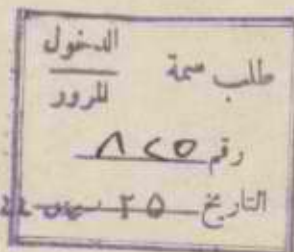 طلب سمة
الدخول
للمرور
رقم ٨٢٥
التاريخ ٢٥